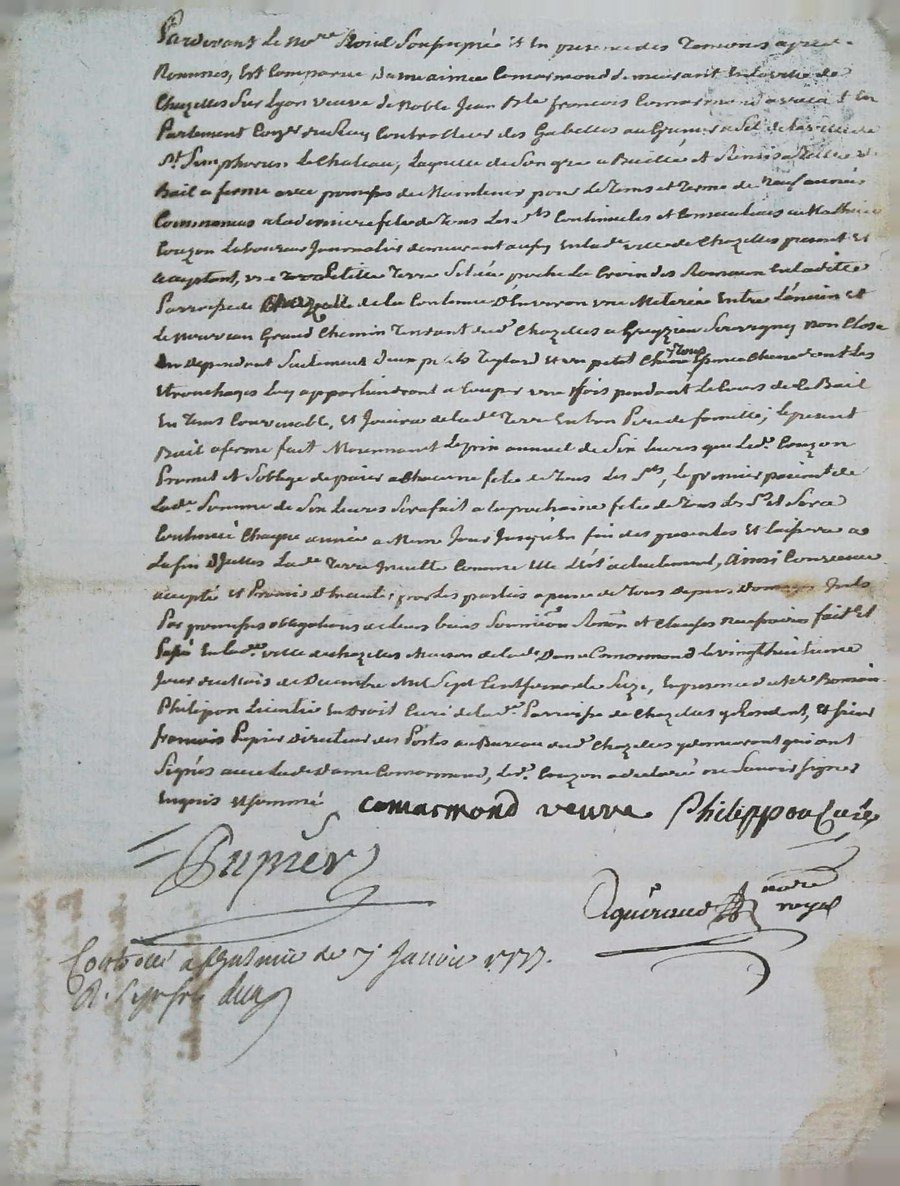 Pardevant le no.re Roial Soussigné et en presence des Temoins apres
Nommés, Est Comparue dame aimée Comarmond demeurant en la ville de
Chazelles sur Lyon veuve de Noble Jean Bte françois Comarmond avocat en
Parlement Con.er du Roy Controlleur des Gabelles au Grenier a Sel de la ville de
St Simphorien le Chateau, Laquelle de Son gré a Baillé et Remis a Titre de
Bail a ferme avec promesse de Maintenir pour le Tems et Terme de neuf années
Commencés a la derniere fete de Tous les Sts Continuelles et Consecutives a Mathieu
Couzon Laboureur Journalier demeurant aussy en lad. ville de Chazelles present et
acceptant, une petitte Terre Scituée proche la Croix des Rameaux en ladite
Parroisse de Chazelle de la Contenue d'Environ une Meterée Entre l'ancien et
le nouveau Grand Chemin Tendant dud. Chazelles a Grezieu Souvigny non Close
en dependent Seulement deux pieds et un petit Chene dont les
Etronchages luy appartiendront a Couper une fois pendant le Cours de la Bail
En Tems Convenable, et Jouira de lad.e Terre En bon Pere de famille; le present
Bail a ferme fait Moyennant le prix annuel de Six livres que led. Couzon
Promet et S'oblige de paier a Chacune fete de Tous les Sts, le premier paiem.t de
lad.e Somme de Six livres Sera fait a la prochaine fete de Tous les Sts et Sera
Continué Chaque année a Meme Jour Jusqu'en fin des presentes Et laissera a
la fin d'Icelles lad.e Terre Inculte Comme Elle l'est actuellement, Ainsi Convenu
accepté et Promis par les parties a peine de Tous depens Domages Interets
Par promesses obligations de leurs biens Soumission Renon. et Clauses necessaires fait et
Passé En lad. ville de Chazelles Maison de lad.e Dame Comarmond le vingt huitieme
Jour du Mois de Decembre Mil Sept Cent Soixante Seize, En presence de Mre Romain
Philipon Licentié En droit Curé de lad.e Parroisse de Chazelles y Résident, et Sieur
francois Pupier Directeur des Postes au Bureau dud. Chazelles y demeurant qui ont
Signés avec lad. Dame Comarmond, led. Couzon a declaré ne Savoir signer
Enquis et Sommé comarmond veuve Philippon Curé
Pupier
notre
royal
Controllé a St Galmier le 7 Janvier 1777.
R.